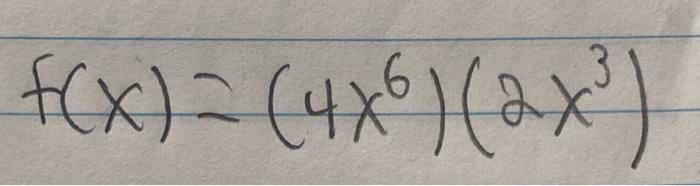 f(x) = (4x⁶)(2x³)